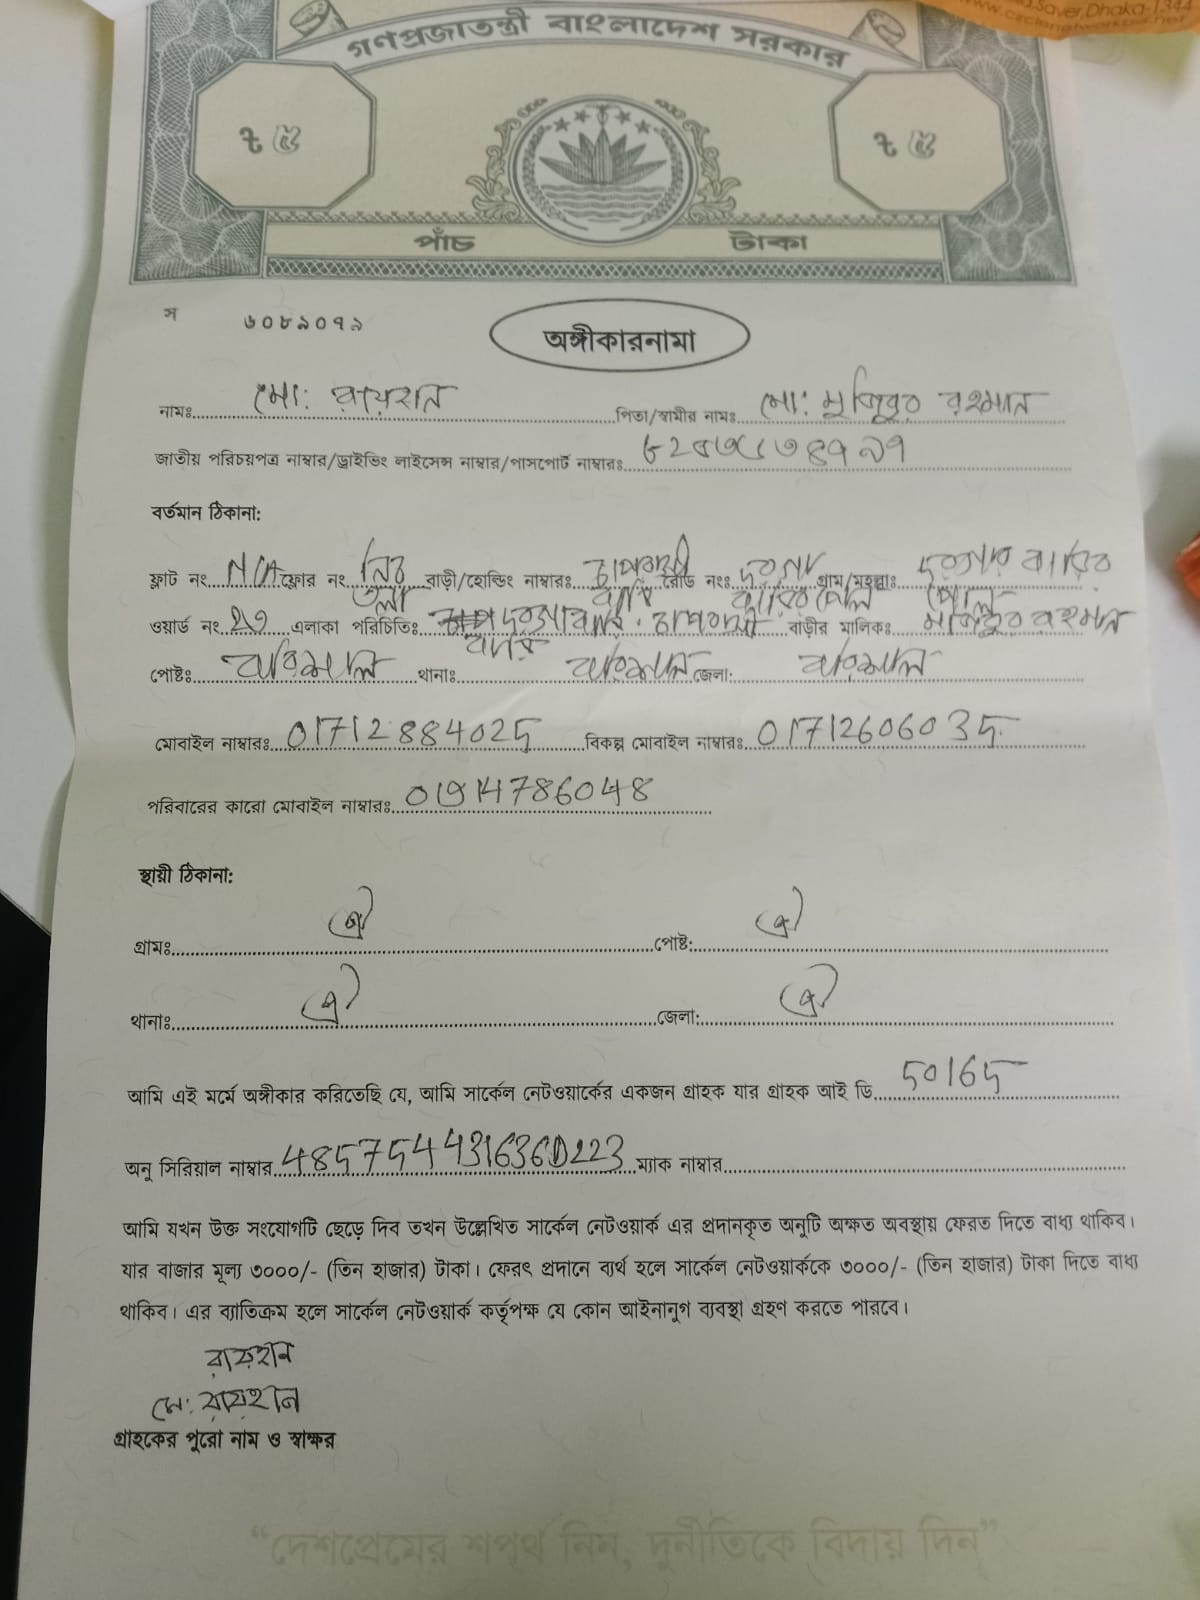 গণপ্রজাতন্ত্রী বাংলাদেশ সরকার
৳ ৫ ৳ ৫
পাঁচ টাকা
স ৬০৮৯০৭৯
অঙ্গীকারনামা
নামঃ মো: রায়হান পিতা/স্বামীর নামঃ মো: মুজিবুর রহমান
জাতীয় পরিচয়পত্র নাম্বার/ড্রাইভিং লাইসেন্স নাম্বার/পাসপোর্ট নাম্বারঃ
বর্তমান ঠিকানা:
ফ্লাট নং N/A ফ্লোর নং নিচ তলা বাড়ী/হোল্ডিং নাম্বারঃ রোড নংঃ দরগা বাড়ির পোল গ্রাম/মহল্লাঃ দরগার বাড়ির পোল
ওয়ার্ড নং ২৩ এলাকা পরিচিতিঃ বাড়ীর মালিকঃ মজিবুর রহমান
পোষ্টঃ বরিশাল থানাঃ বরিশাল জেলা: বরিশাল
মোবাইল নাম্বারঃ 01712884025 বিকল্প মোবাইল নাম্বারঃ 01712606035
পরিবারের কারো মোবাইল নাম্বারঃ 01914786048
স্থায়ী ঠিকানা:
গ্রামঃ ঐ পোষ্ট: ঐ
থানাঃ ঐ জেলা: ঐ
আমি এই মর্মে অঙ্গীকার করিতেছি যে, আমি সার্কেল নেটওয়ার্কের একজন গ্রাহক যার গ্রাহক আই ডি 50165
অনু সিরিয়াল নাম্বার 485754431636D223 ম্যাক নাম্বার
আমি যখন উক্ত সংযোগটি ছেড়ে দিব তখন উল্লেখিত সার্কেল নেটওয়ার্ক এর প্রদানকৃত অনুটি অক্ষত অবস্থায় ফেরত দিতে বাধ্য থাকিব।
যার বাজার মূল্য ৩০০০/- (তিন হাজার) টাকা। ফেরৎ প্রদানে ব্যর্থ হলে সার্কেল নেটওয়ার্ককে ৩০০০/- (তিন হাজার) টাকা দিতে বাধ্য
থাকিব। এর ব্যাতিক্রম হলে সার্কেল নেটওয়ার্ক কর্তৃপক্ষ যে কোন আইনানুগ ব্যবস্থা গ্রহণ করতে পারবে।
রায়হান
মো: রায়হান
গ্রাহকের পুরো নাম ও স্বাক্ষর
“দেশপ্রেমের শপথ নিন, দুর্নীতিকে বিদায় দিন”